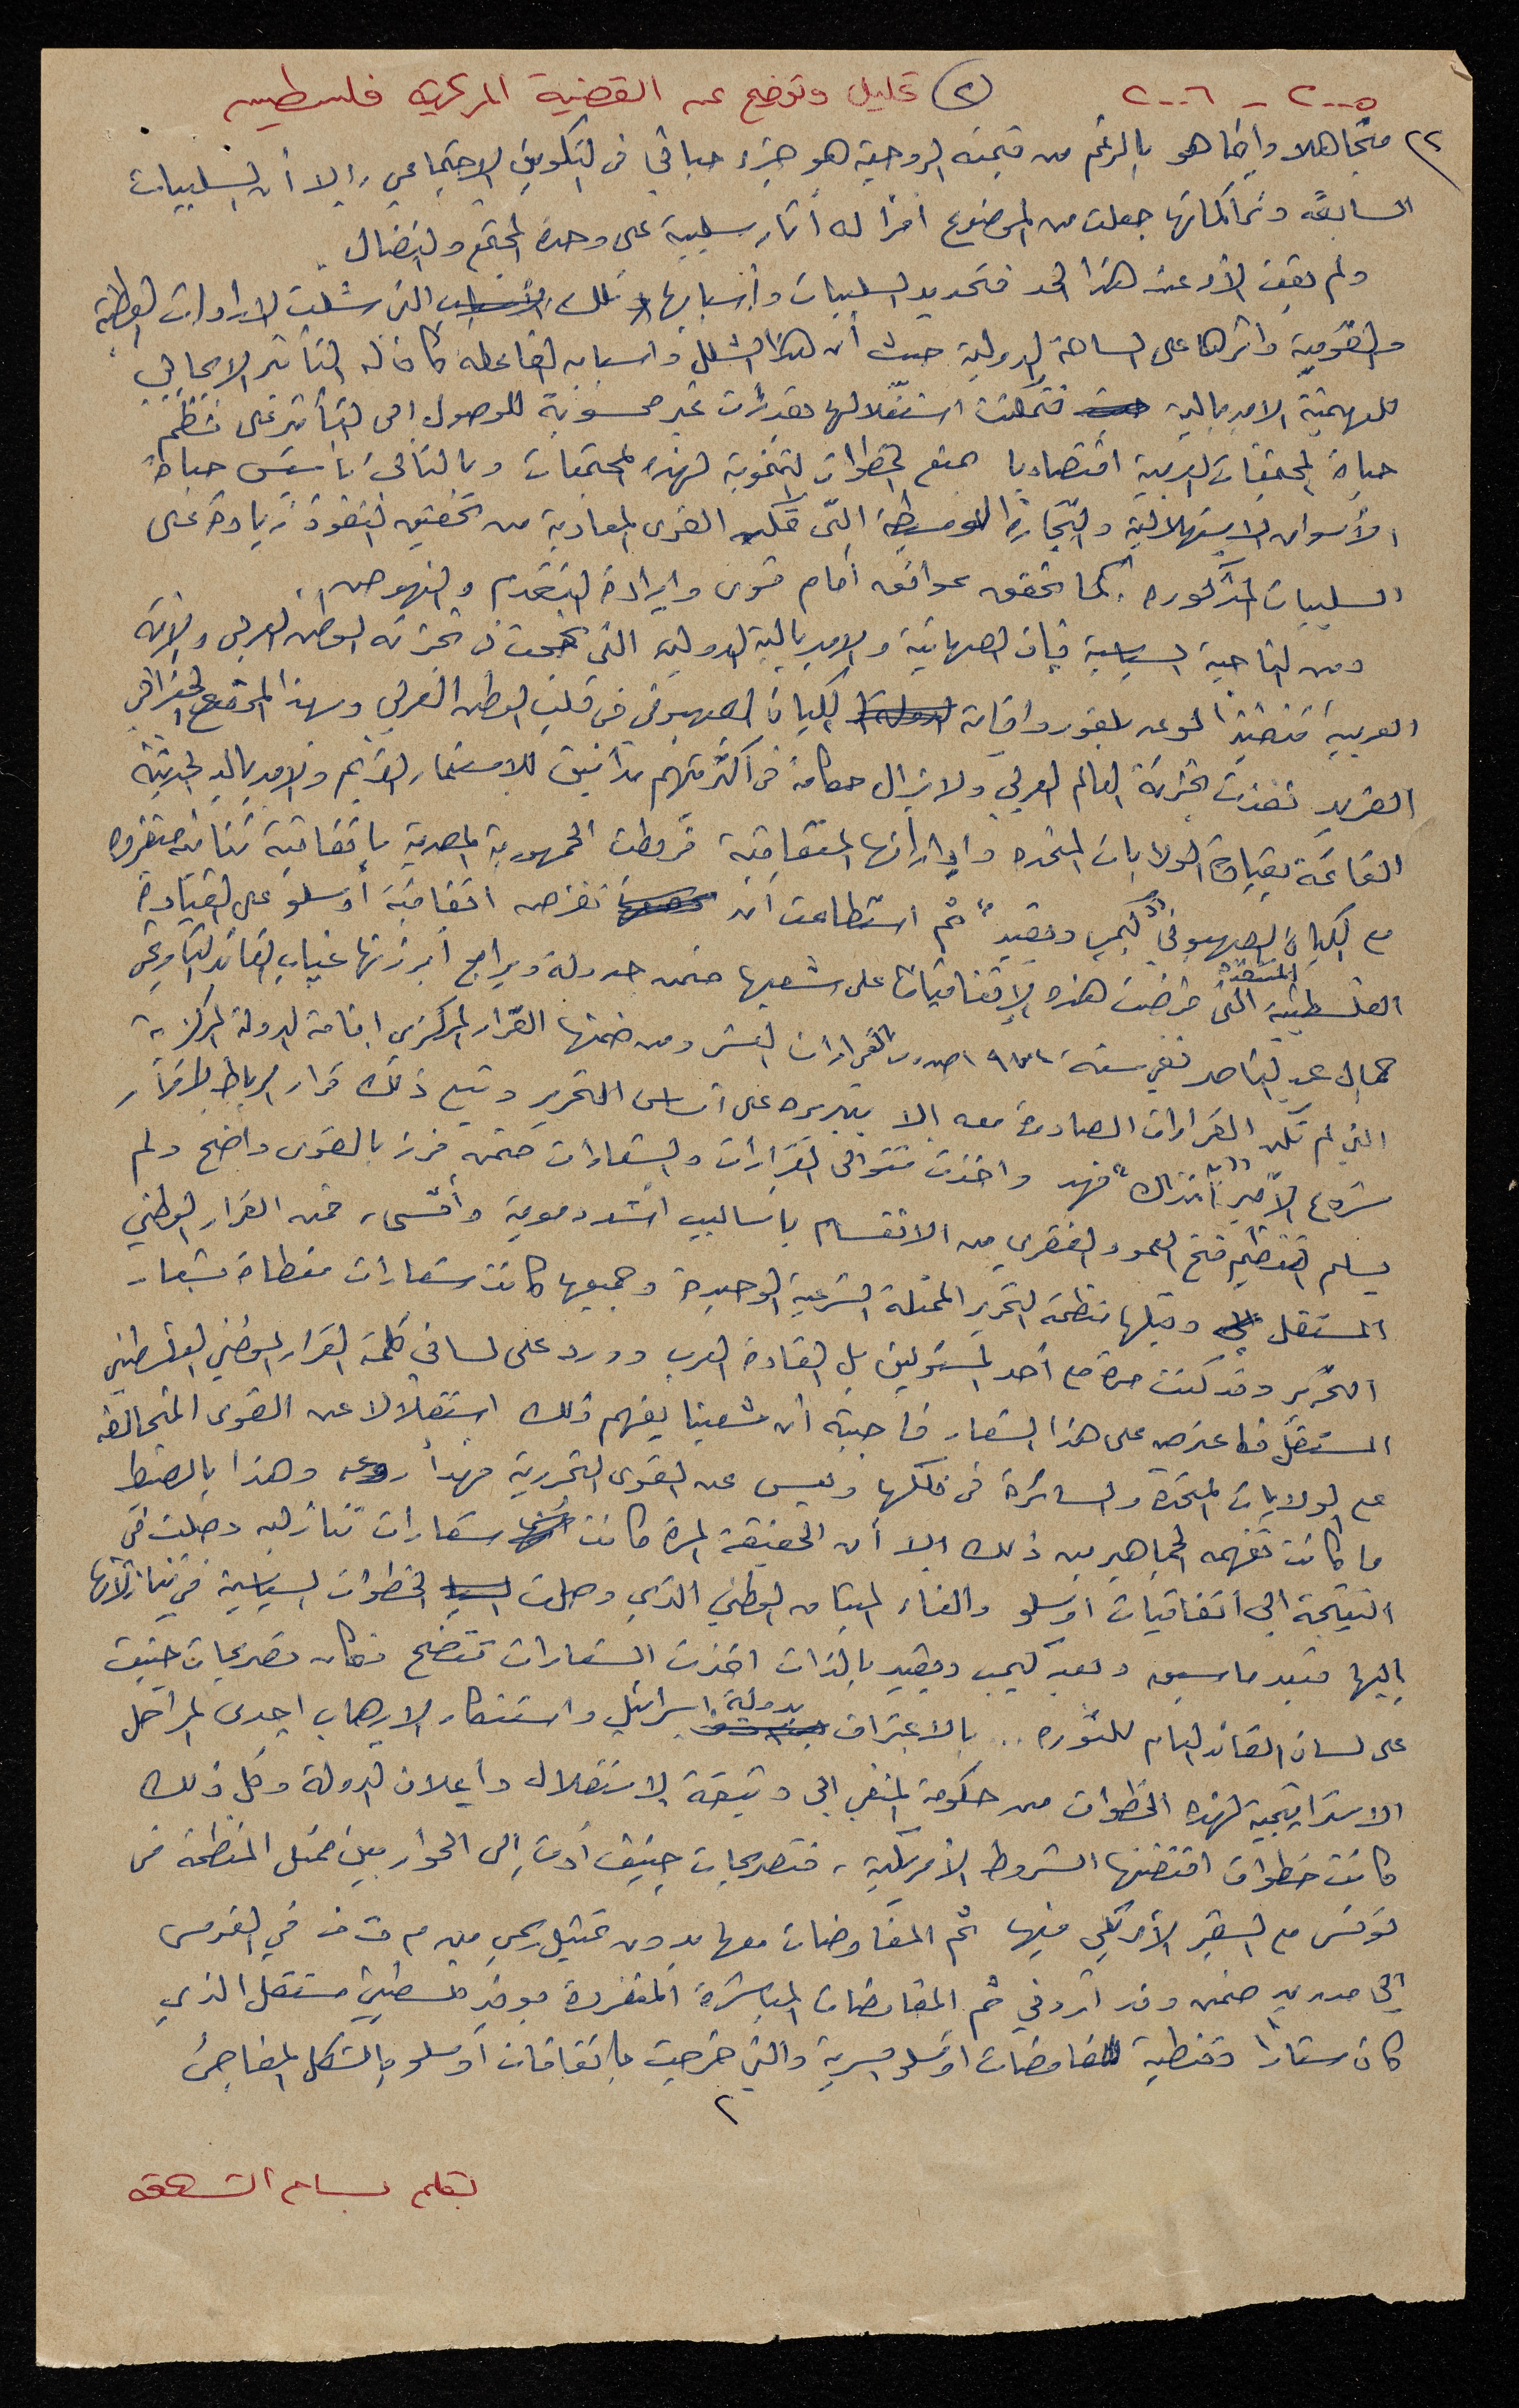 ٢٠٠٥ - ٢٠٠٦ (٢) تحليل وتوضيح عن القضية المركزية فلسطين
٢٢ متجاهلا وأيضا هو بالرغم من قيمته الروحية هو جزء حياتي في التكوين الاجتماعي، إلا أن السلبيات
السابقة وتراكماتها جعلت من الموضوع أمرا له آثار سلبية على وحدة المجتمع والنضال.
ولم يقف الأمر عند هذا الحد فتحديد السلبيات وأسبابها تلك الأسباب التي شلت الإرادات القطرية
والقومية وأثرها على الساحة الدولية حيث أن هذا الشلل وأسبابه الفاعلة كان له التأثير الايجابي
للهيمنة الامبريالية فتمكنت استغلالها بقدرات غير محسوبة للوصول الى التأثير على تنظيم
حياة المجتمعات العربية اقتصاديا بمنع الخطوات التنموية لهذه المجتمعات وبالتالي تأسيس حياة
الأسواق الاستهلالية والتجارة الوسيطة التي تمكن القوى المعادية من تحقيق النفوذ زيادة على
السلبيات المذكورة. كما تحقق عوائقه أمام قوى وإرادة التقدم والنهوض.
ومن الناحية السياسية فإن الصهيانية والامبريالية الدولية التي نجحت في تجزئة الوطن العربي والأمة
العربية تنفيذا لوعد بلفور واقامة الكيان الصهيوني في قلب الوطن العربي وبهذا الموقع الجغرافي
الفريد نفذت تجزئة العالم العربي ولا يزال حكامه في أكثريتهم مدانين للاستعمار القديم والامبريالية الحديثة
القائمة بقيادة الولايات المتحدة وإداراتها المتعاقبة فربطت الجمهورية المصرية باتفاقية ثنائية منفردة
مع الكيان الصهيوني "كيمب ديفيد" ثم استطاعت أن تفرض اتفاقية أوسلو على القيادة
الفلسطينية المتنفذة التي فرضت هذه الإتفاقيات على شعبها ضمن جدولة وبرامج أبرزتها غياب القائد التاريخي
جمال عبد الناصر ففي سنة ١٩٧٤ صدرت القرارات العشر ومن ضمنها القرار المركزي اقامة الدولة المركزية
التي لم تكن القرارات الصادرة معه إلا بتبريره على أساس التحرير وتبع ذلك قرار الرباط
شروع الأمير "آنذاك" فهد واخذت تتوالى القرارات والشعارات ضمن فرز بالقوى واضح ولم
يسلم تنظيم فتح العمود الفقري من الانقسام بأساليب أشد دموية وأقسى، ضمن القرار الوطني
المستقل وقبلها منظمة التحرير الممثلة الشرعية الوحيدة وجميعها كانت شعارات مغطاة بشعار
التحرير وقد كنت مرة مع أحد المسئولين بل القادة العرب وورد على لساني كلمة القرار الوطني الفلسطيني
المستقل فاعترض على هذا الشعار فأجبته أن شعبنا يفهم ذلك استقلالا عن القوى المتحالفة
مع الولايات المتحدة والسائرة في فلكها وليس عن القوى التحررية فهدأ روعه وهذا بالضبط
ما كانت تفهمه الجماهير من ذلك إلا أن الحقيقة المرة كانت شعارات تنازليه وصلت في
النتيجة الى اتفاقيات اوسلو والغاء الميثاق الوطني الذي وصلت الخطوات السياسية في تنازلاتها
إليها فبعد ما سبق وبعد كيمب ديفيد بالذات اخذت الشعارات تتضح فكان تصريحات جنيف
على لسان القائد العام للثورة .. بالاعتراف بدولة اسرائيل واستنكار الارهاب احدى المراحل
الاستراتيجية لهذه الخطوات من حكومة المنفى الى وثيقة الاستقلال وإعلان الدولة وكل ذلك
كانت خطوات اقتضتها الشروط الأمريكية، فتصريحات جنيف أدت إلى الحوار بين ممثل المنظمة في
تونس مع السفير الأمريكي فيها ثم المفاوضات معها بدون تمثيل رسمي من م ت ف في القدس
إلى مدريد ضمن وفد اردني ثم المفاوضات المباشرة المنفردة بوفد فلسطيني مستقل الذي
كان ستارا وتغطية لمفاوضات اوسلو السرية والتي خرجت باتفاقات أوسلو بالشكل المفاجئ
٢
بقلم بسام الشكعة